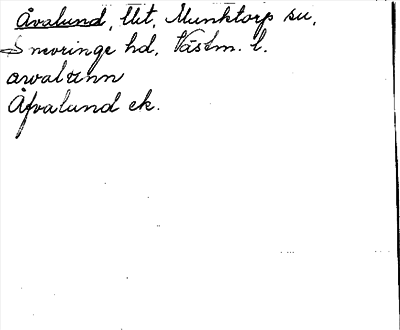 Åvalund, Ut. Munktorp sn,
Snevringe hd, Västm. l.
Åfvalund ek.